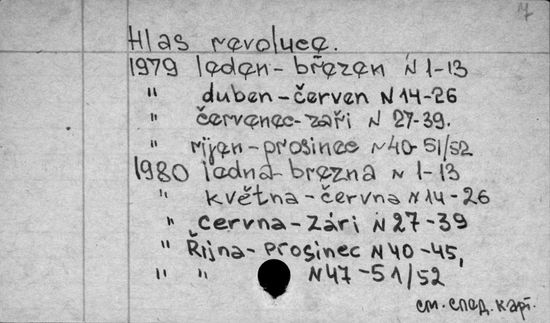 7
Hlas revoluce.
1979 leden-březen N 1-13
" duben-červen N 14-26
" červenec-zaři N 27-39.
" rijen-prosinec N 40-51/52
1980 ledna-brezna N 1-13
" května-června N 14-26
" cervna-zári N 27-39
" Řijna-prosinec N 40-45,
" " N 47-51/52
см. след. карт.